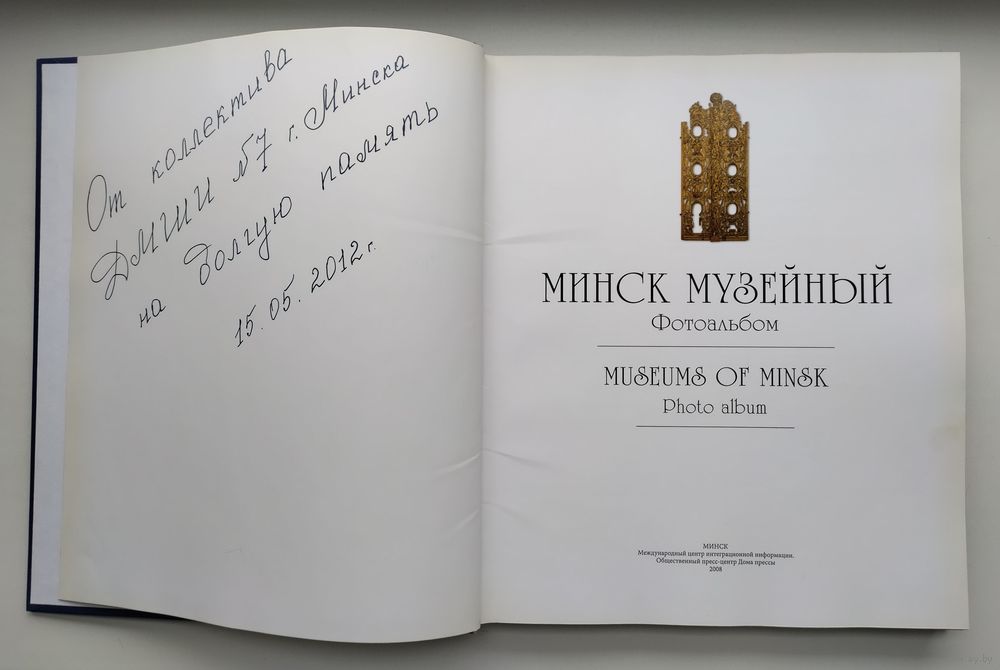 От коллектива
ДМШИ №7 г. Минска
на долгую память
15.05.2012 г.
МИНСК МУЗЕЙНЫЙ
Фотоальбом
MUSEUMS OF MINSK
Photo album
МИНСК
Международный центр интеграционной информации.
Общественный пресс-центр Дома прессы
2008
ay.by